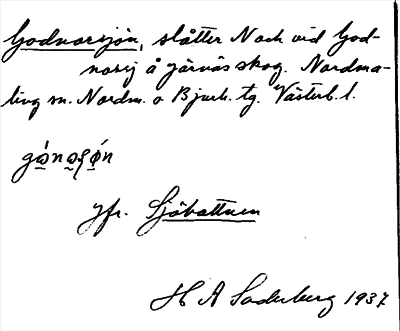 Godnorsjön, slåtter N och vid God-
norsj å järnäs skog. Nordma-
ling sn. Nordm. o Bjurh. tg. Västerb. l.
jfr. Sjöbattnen
H A Söderberg 1937